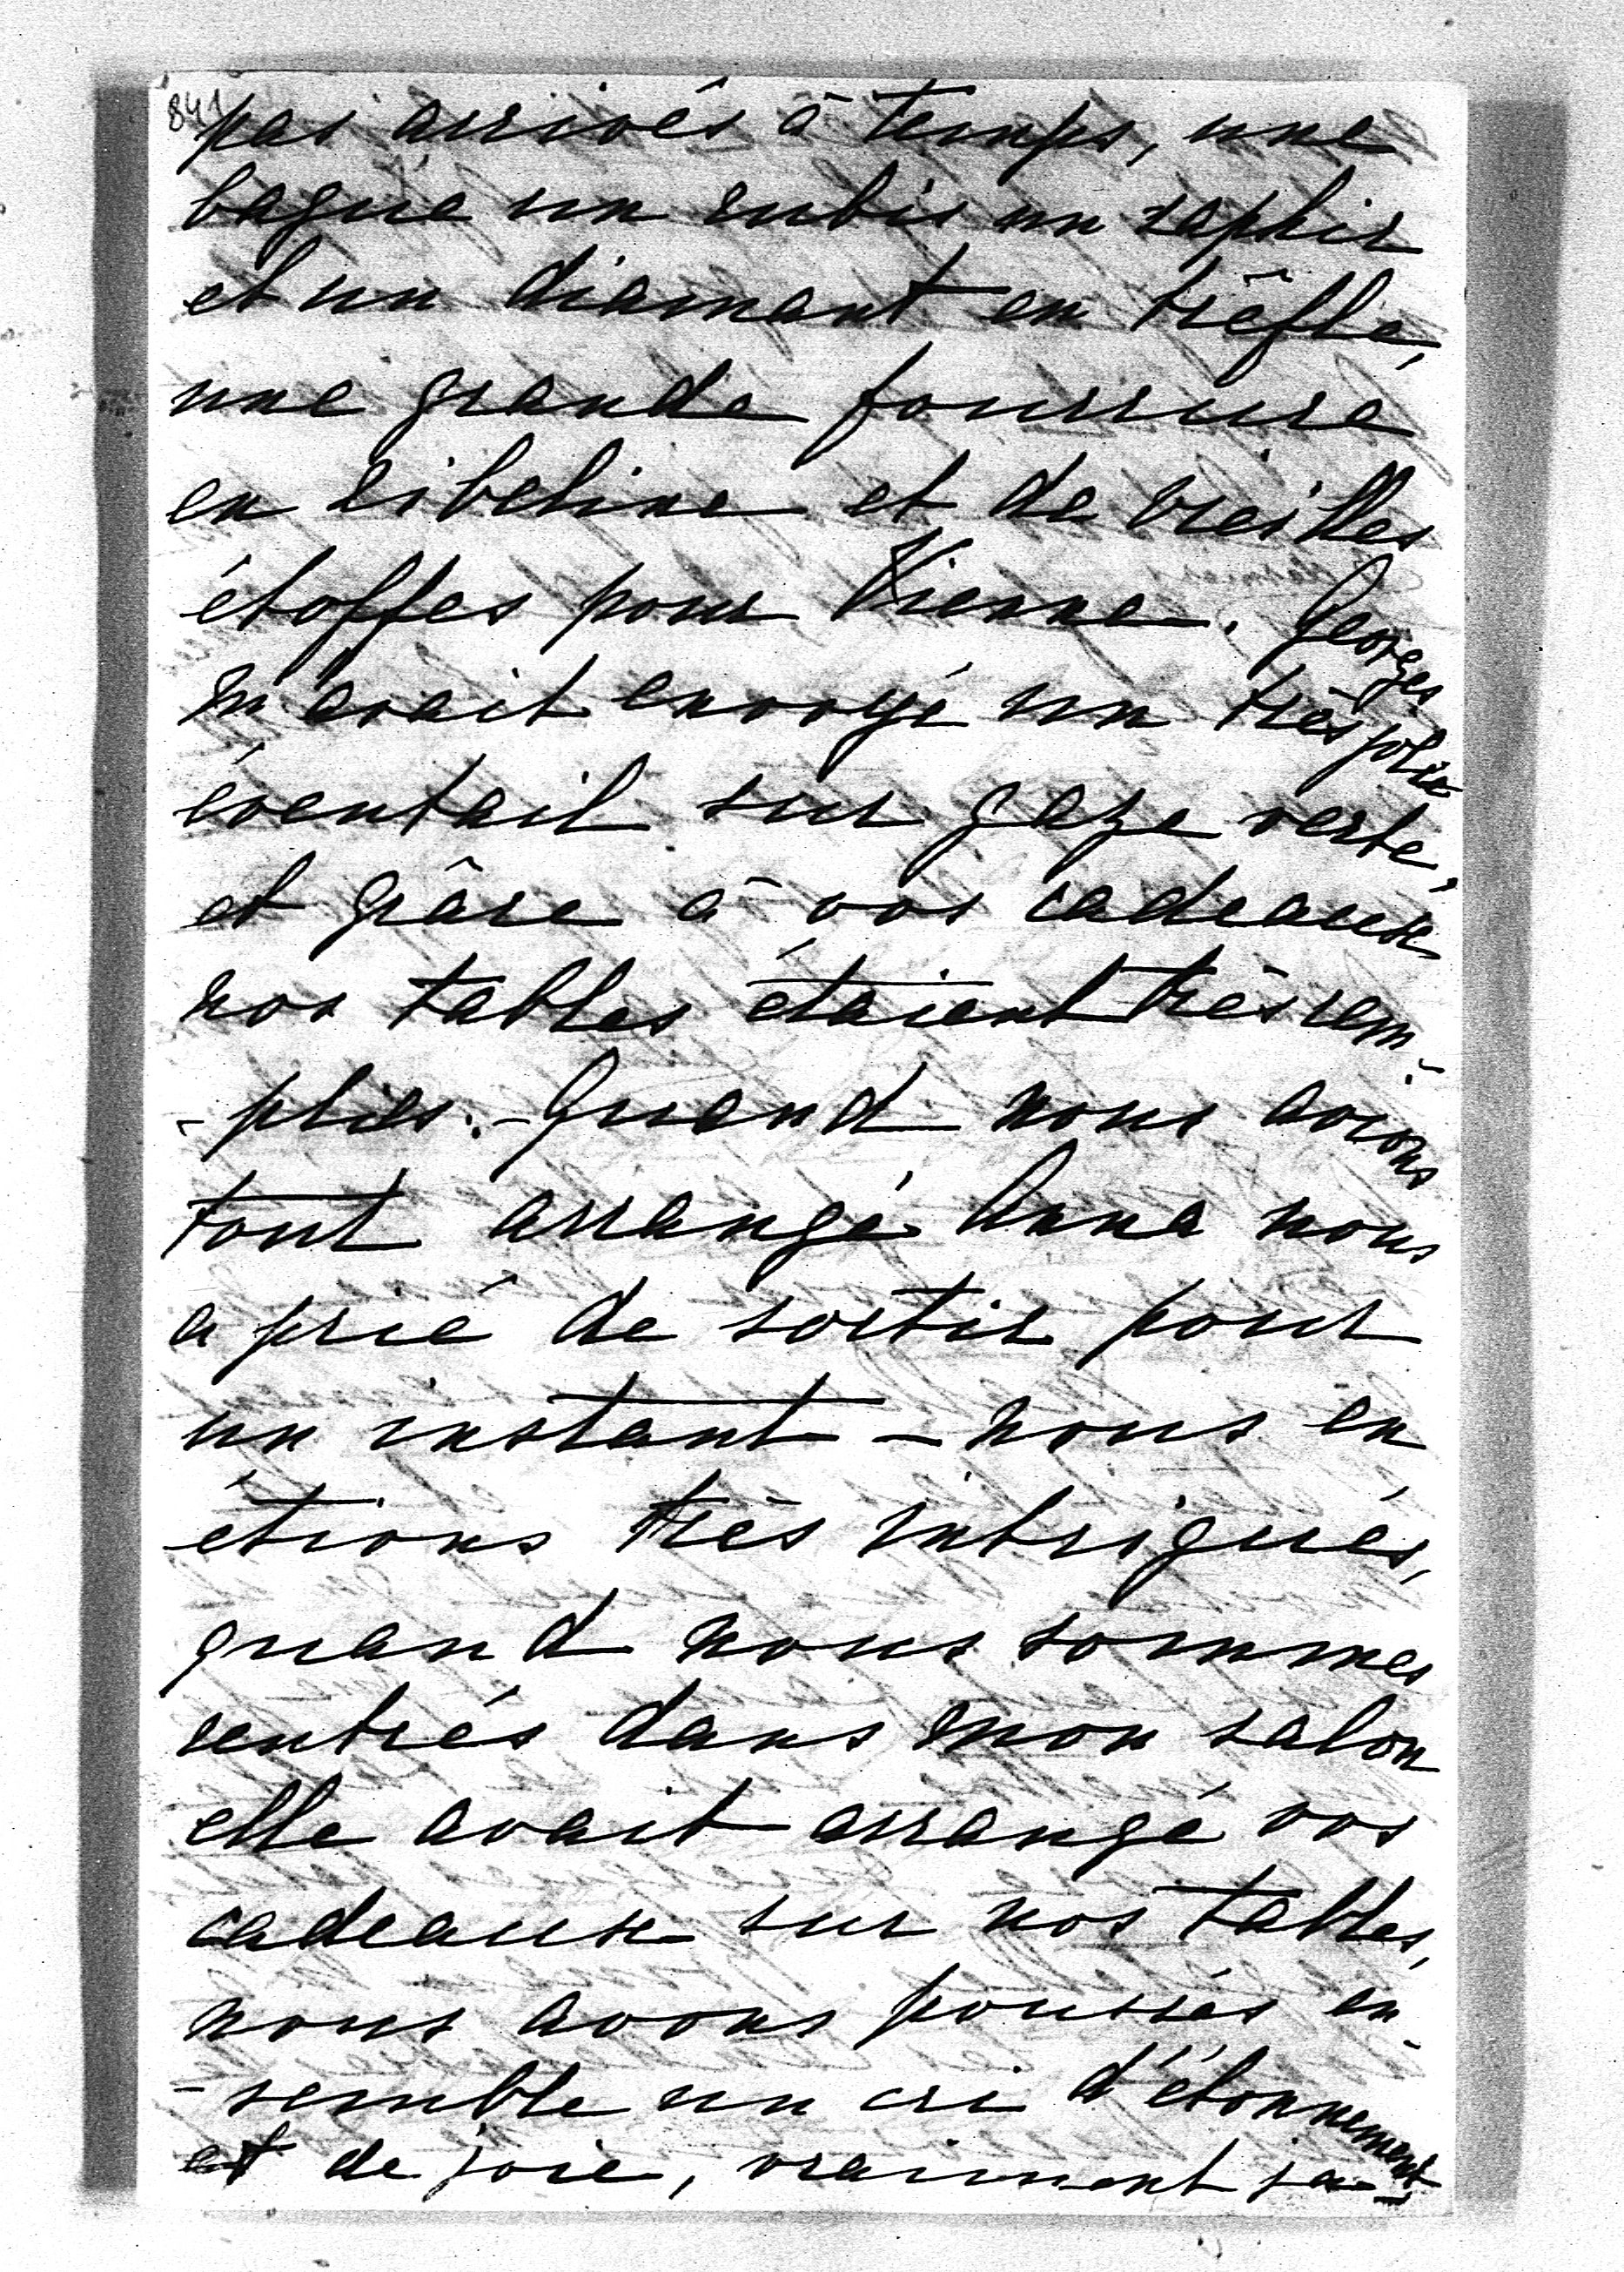 841
pas arrivés à temps, une
bague un rubis un saphir
et un diamant en trêfle,
une grande fourrure
en zibeline et de vieilles
étoffes pour Vienne. Georges
m'avait envoyé un très jolie
éventail sur gaze verte,
et grâce à vos cadeaux
nos tables étaient très rem-
-plies. - Quand nous avions
tout arrangé Anna nous
a prié de sortir pour
un instant - nous en
étions très intrigués,
quand nous sommes
rentrés dans mon salon
elle avait arrangé vos
cadeaux sur nos tables,
nous avons poussés en-
-semble un cri d'étonnement
et de joie, vraiment ja-